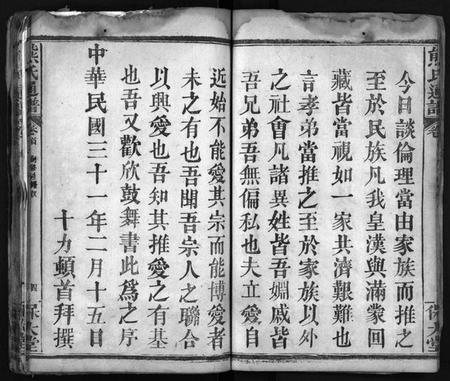 熊氏通譜
今日談倫理當由家族而推之
至於民族凡我皇漢與滿蒙回
藏皆當視如一家共濟艱難也
言孝弟當推之至於家族以外
之社會凡諸異姓皆吾婣戚皆
吾兄弟吾無偏私也夫立愛自
近始不能愛其宗而能博愛者
未之有也吾聞吾宗人之聯合
以興愛也吾知其推愛之有基
也吾又歡欣鼓舞書此為之序
中華民國三十一年二月十五日
十力頓首拜撰
熊氏通譜
卷首
四
保大堂